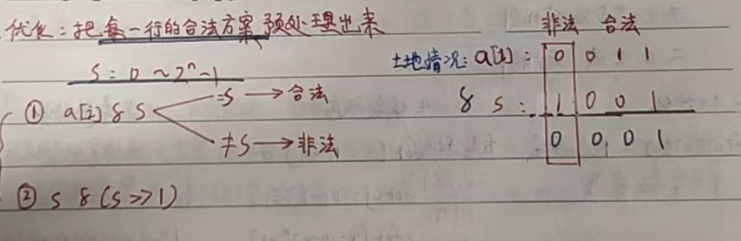 优化：把每一行的合法方案预处理出来
非法 合法
S：0 ~ 2ⁿ-1
土地情况：a[i]：0 0 1 1
① a[i] & S
=S → 合法
≠S → 非法
& S：1 0 0 1
0 0, 0 1
② S & (S>>1)